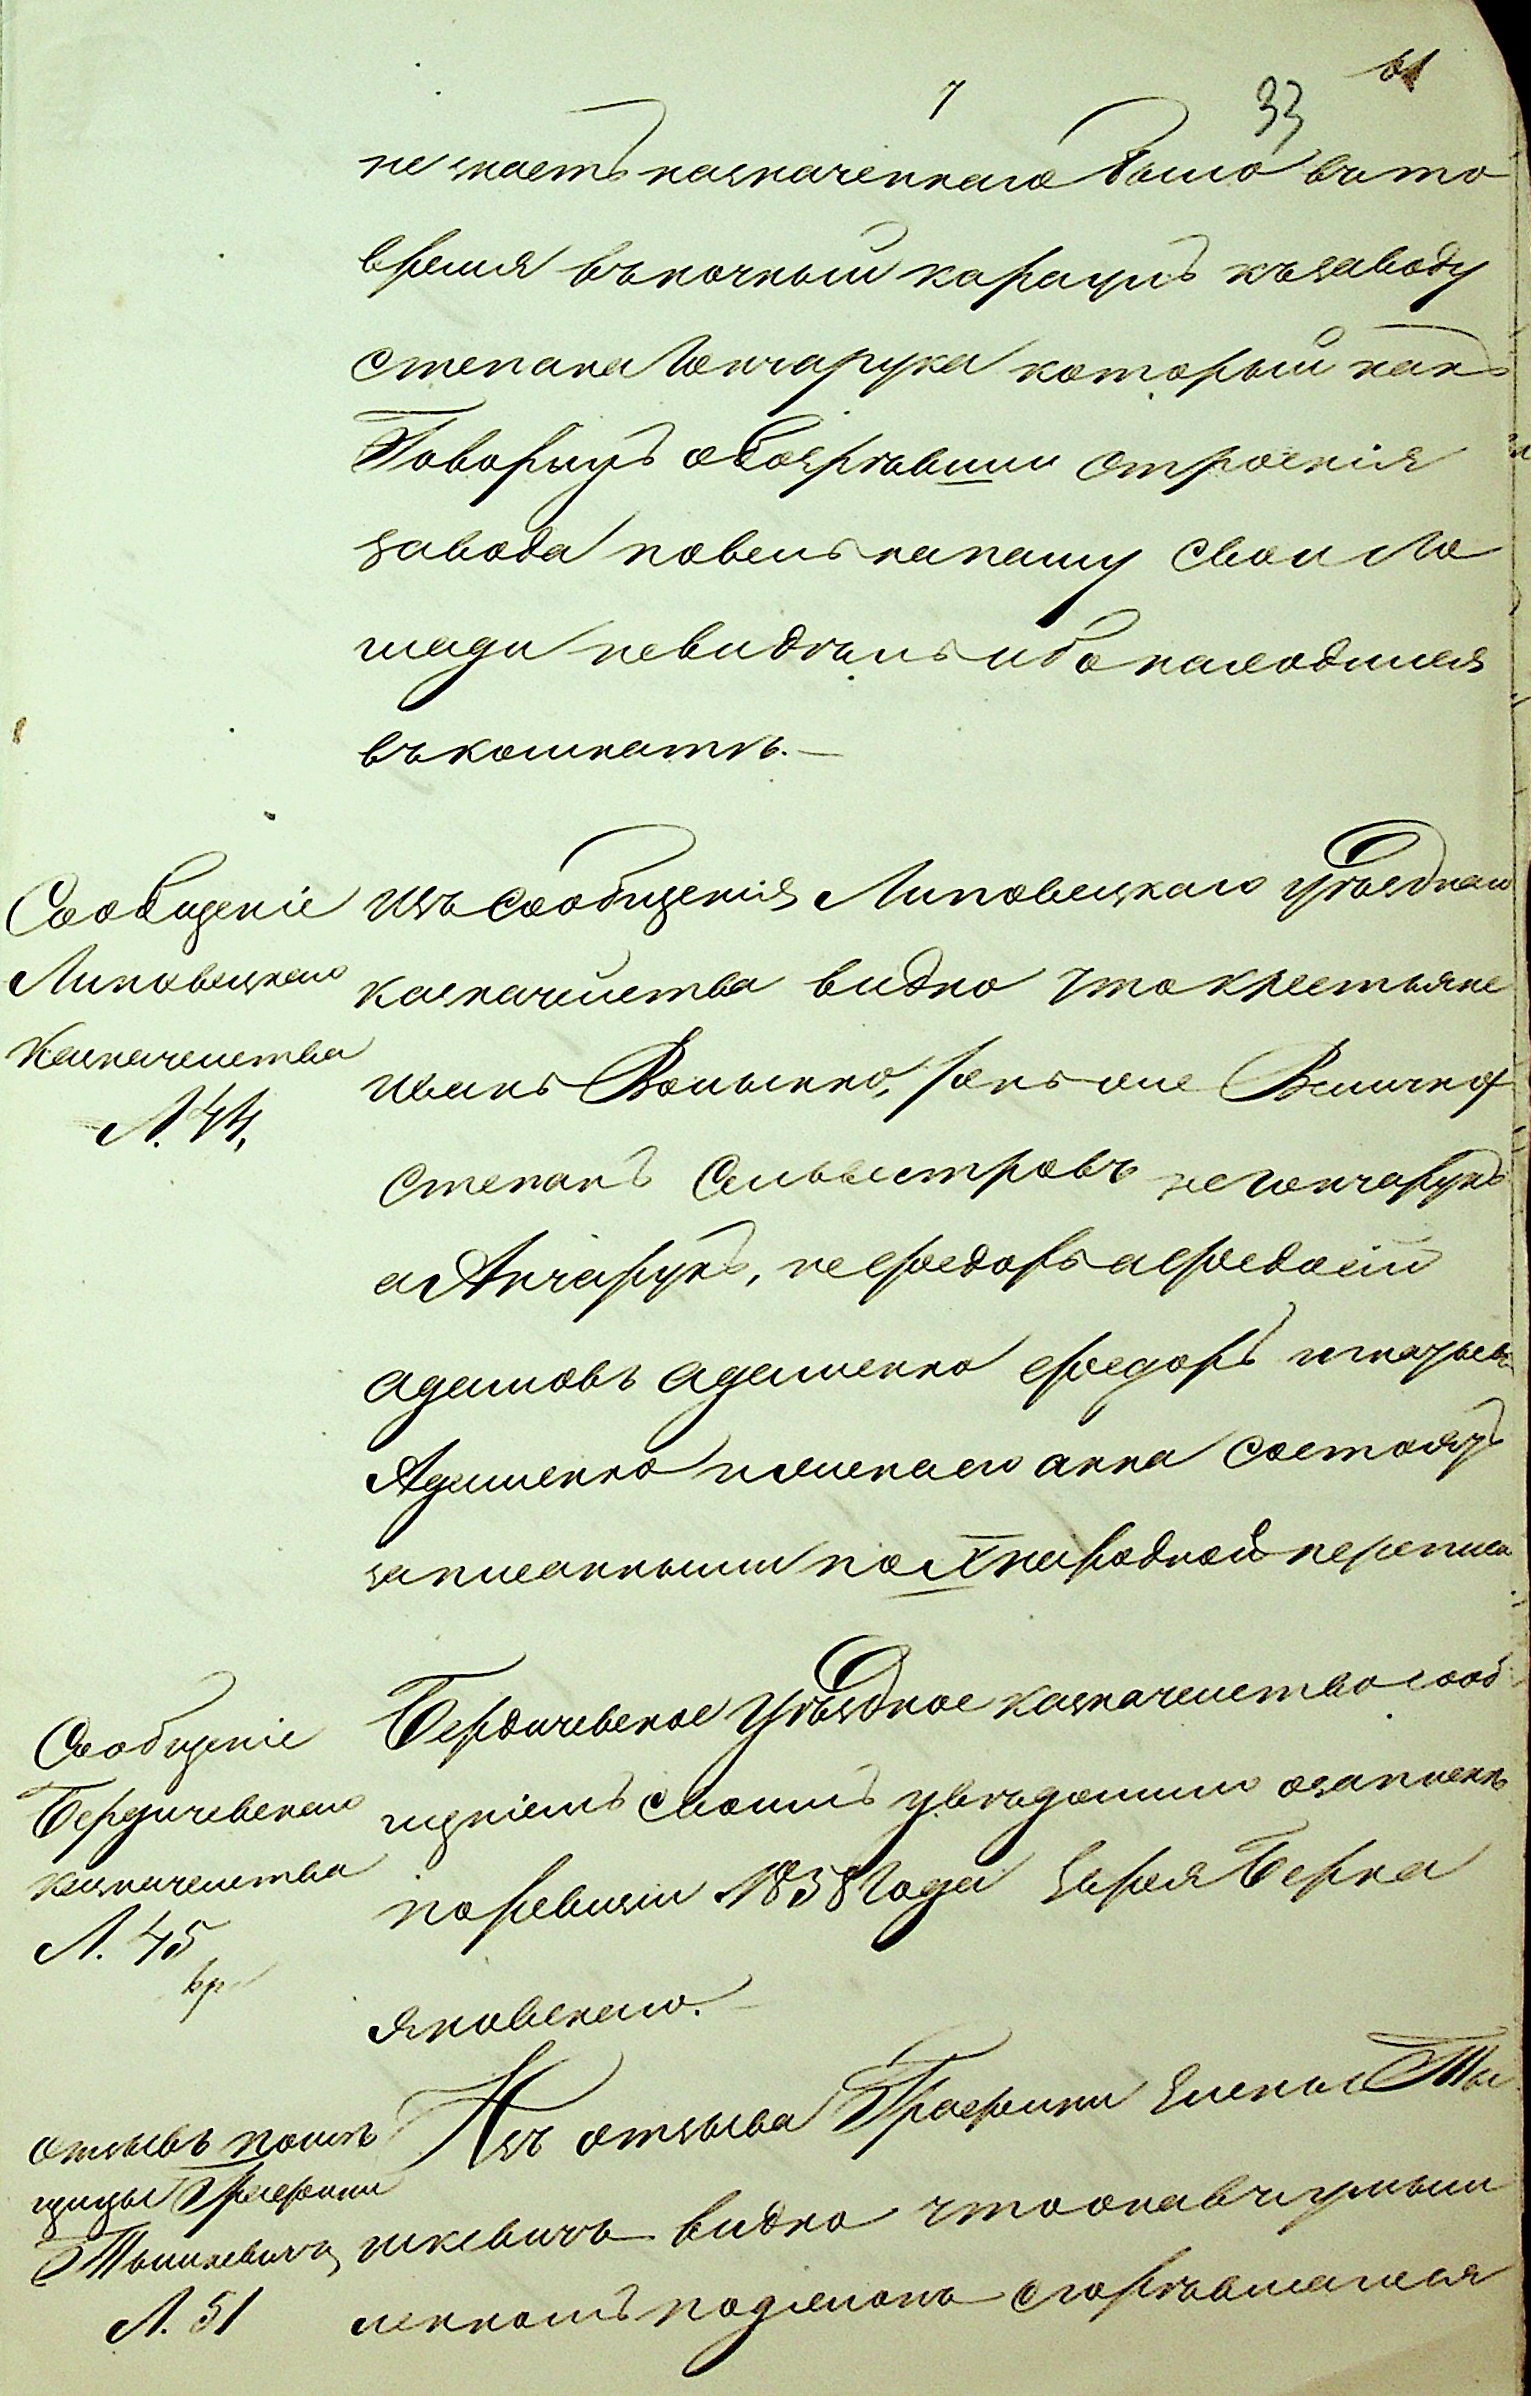 7
33
не знаетъ назначеннаго было въ то
время въ ночный караулъ къ заводу
Степана Гончарука который какъ
Говорилъ обозрѣвши строенія
завода повелъ на пашу свои ло
шади невидѣлъ ибо находился
въ комнатѣ.
Сообщеніе
Липовецкаго
Казначейства
Л. 44,
изъ сообщенія Липовецкаго Уѣзднаго
казначейства видно что крестьяне
иванъ Волынко, онъ же
степанъ Сильвестровъ не гончарукъ
а Анчарукъ, не Федоръ а Федосій
адамовъ адаменко Федоръ игнатьевъ
Адаменко и жена его анна состоятъ
записанными по X народной переписи
Сообщеніе
Бердичевскаго
казначейства
Л. 45
Бердичевское Уѣздное казначейство сооб
щеніемъ своимъ увѣдомило о запискѣ
по ревизіи 1858 Года Берка
яновскаго.
отзывъ помѣ
щицы Графини
Тышкевичъ
Л. 51
Изъ отзыва Графини Елены Ты
шкевичъ видно что она въ умыш
ленномъ поджогѣ сгорѣвшагося